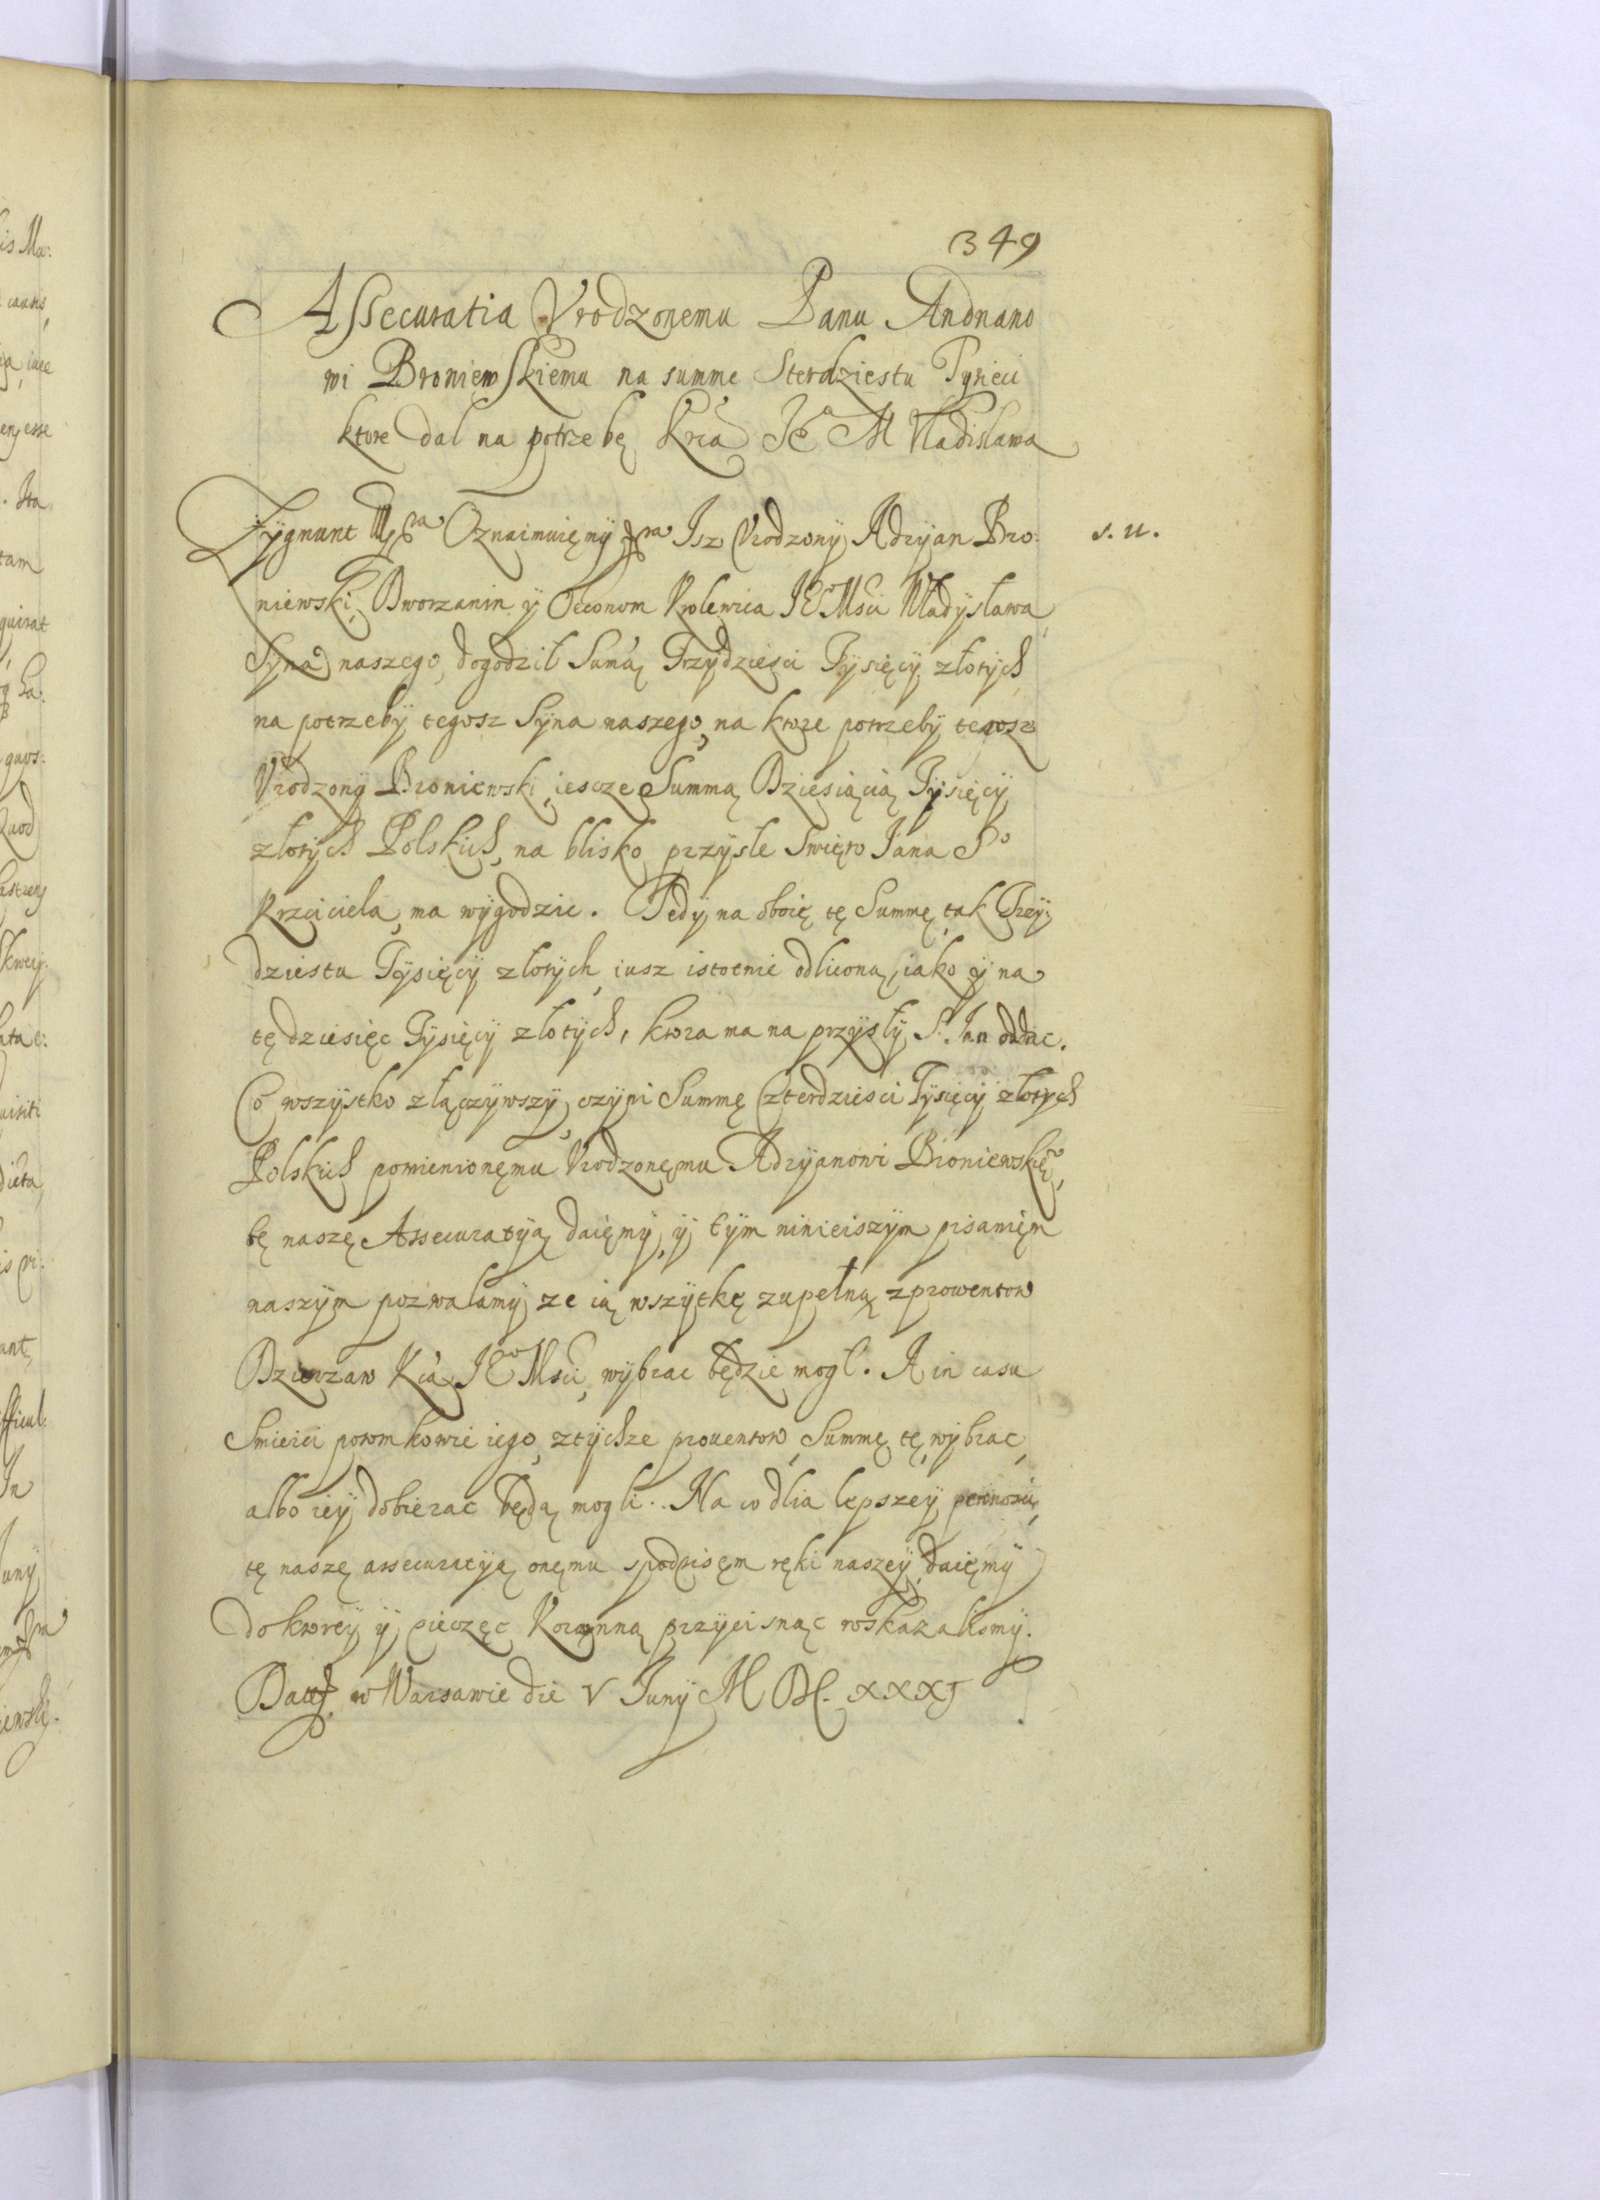 349
Assecuratia Vrodzonemu Panu Andriano
wi Broniewskiemu na summe Sterdziestu Tysieci
ktore dal na potrzebę Krca Je° M Vladislawa
Zygmunt III etc Oznaimuięmy etc Isz Vrodzony Adryan Bro: s. n.
niewski, Dworzanin y Oeconom Krolewica JE° Msci Wladysława
Syna naszego, dogodzil Sumą Trzydziesci Tysięcy złotych
na potrzeby tegosz Syna naszego, na ktore potrzeby tegosz
Vrodzony Broniewski, iescze Summą Dziesiącią Tysięcy
złotych Polskich, na blisko przysłe Swięto Jana S°
Krzciciela, ma wygodzic. Tedy na oboię tę Summę, tak Trzy:
dziestu Tysięcy złotych, iusz istotnie odliconą, iako y na
tę dziesięc Tysięcy złotych, ktora ma na przysły S. Jan oddac.
Co wszystko złączywszy, czyni Summę Czterdziesci Tysięcy złotych
Polskich pomienionęmu Vrodzonęmu Adryanowi Broniewskię°,
tę naszę Assecuratyą daięmy, y tym ninieiszym pisanięm
naszym pozwalamy ze ią wszytkę zupełną z prowentow
Dzierzaw Kca JE° Msci, wybrac będzie mogl. A in casu
Smierci potomkowie iego, z tychze prouentow, Summę tę wybrac,
albo iey dobierac będą mogli. Na co dlia lepszey pewnosci,
tę naszę assecuratyą onęmu s podpisęm ręki naszey daięmy
do ktorey y pieczęc Koronną przycisnąc roskazalismy.
Datt w Warsawie die V Juny M DC. XXXI